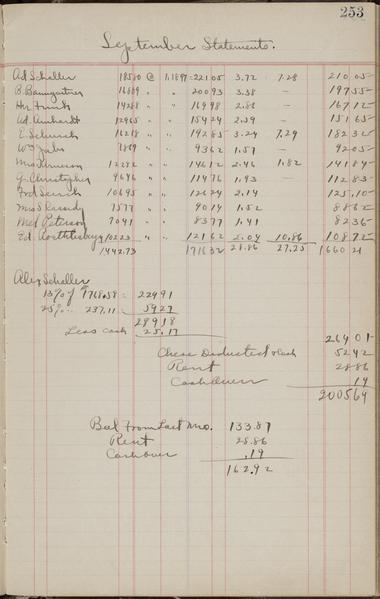 253
September Statements.
Ad Scheller 18580 @ 1.1897 = 22105 3.72 7.28 21005
B. Baumgartner 16889 " " 20093 3.38 — 19755
Hy Frunk 14288 " " 16998 2.86 — 16712
Ad. Amhardt 12965 " " 15424 2.59 — 15165
E. 16218 " " 19285 3.24 7.29 18232
Wm 7869 " " 9362 1.57 — 9205
Mrs 12282 " " 14612 2.46 1.82 14184
G. Christopher 9646 " " 11476 1.93 — 11283
Frd 10695 " " 12724 2.14 125.10
Mrs S Cassidy 7577 " " 9014 1.52 8862
Mrs Peterson 7041 " " 8377 1.41 8236
Ed. 10223 " " 12162 2.04 10.86 10872
1442.73 171632 28.86 27.25 166021
Alex Scheller
13% of 1768.58 = 22991
25% " 237.11 = 5927
28918
Less Cash 25.17
26401
Cheese Deducted & Cash 5242
Rent 2886
Cash over 19
200569
Bal From Last Mo. 133.87
Rent 28.86
Cash over .19
162.92